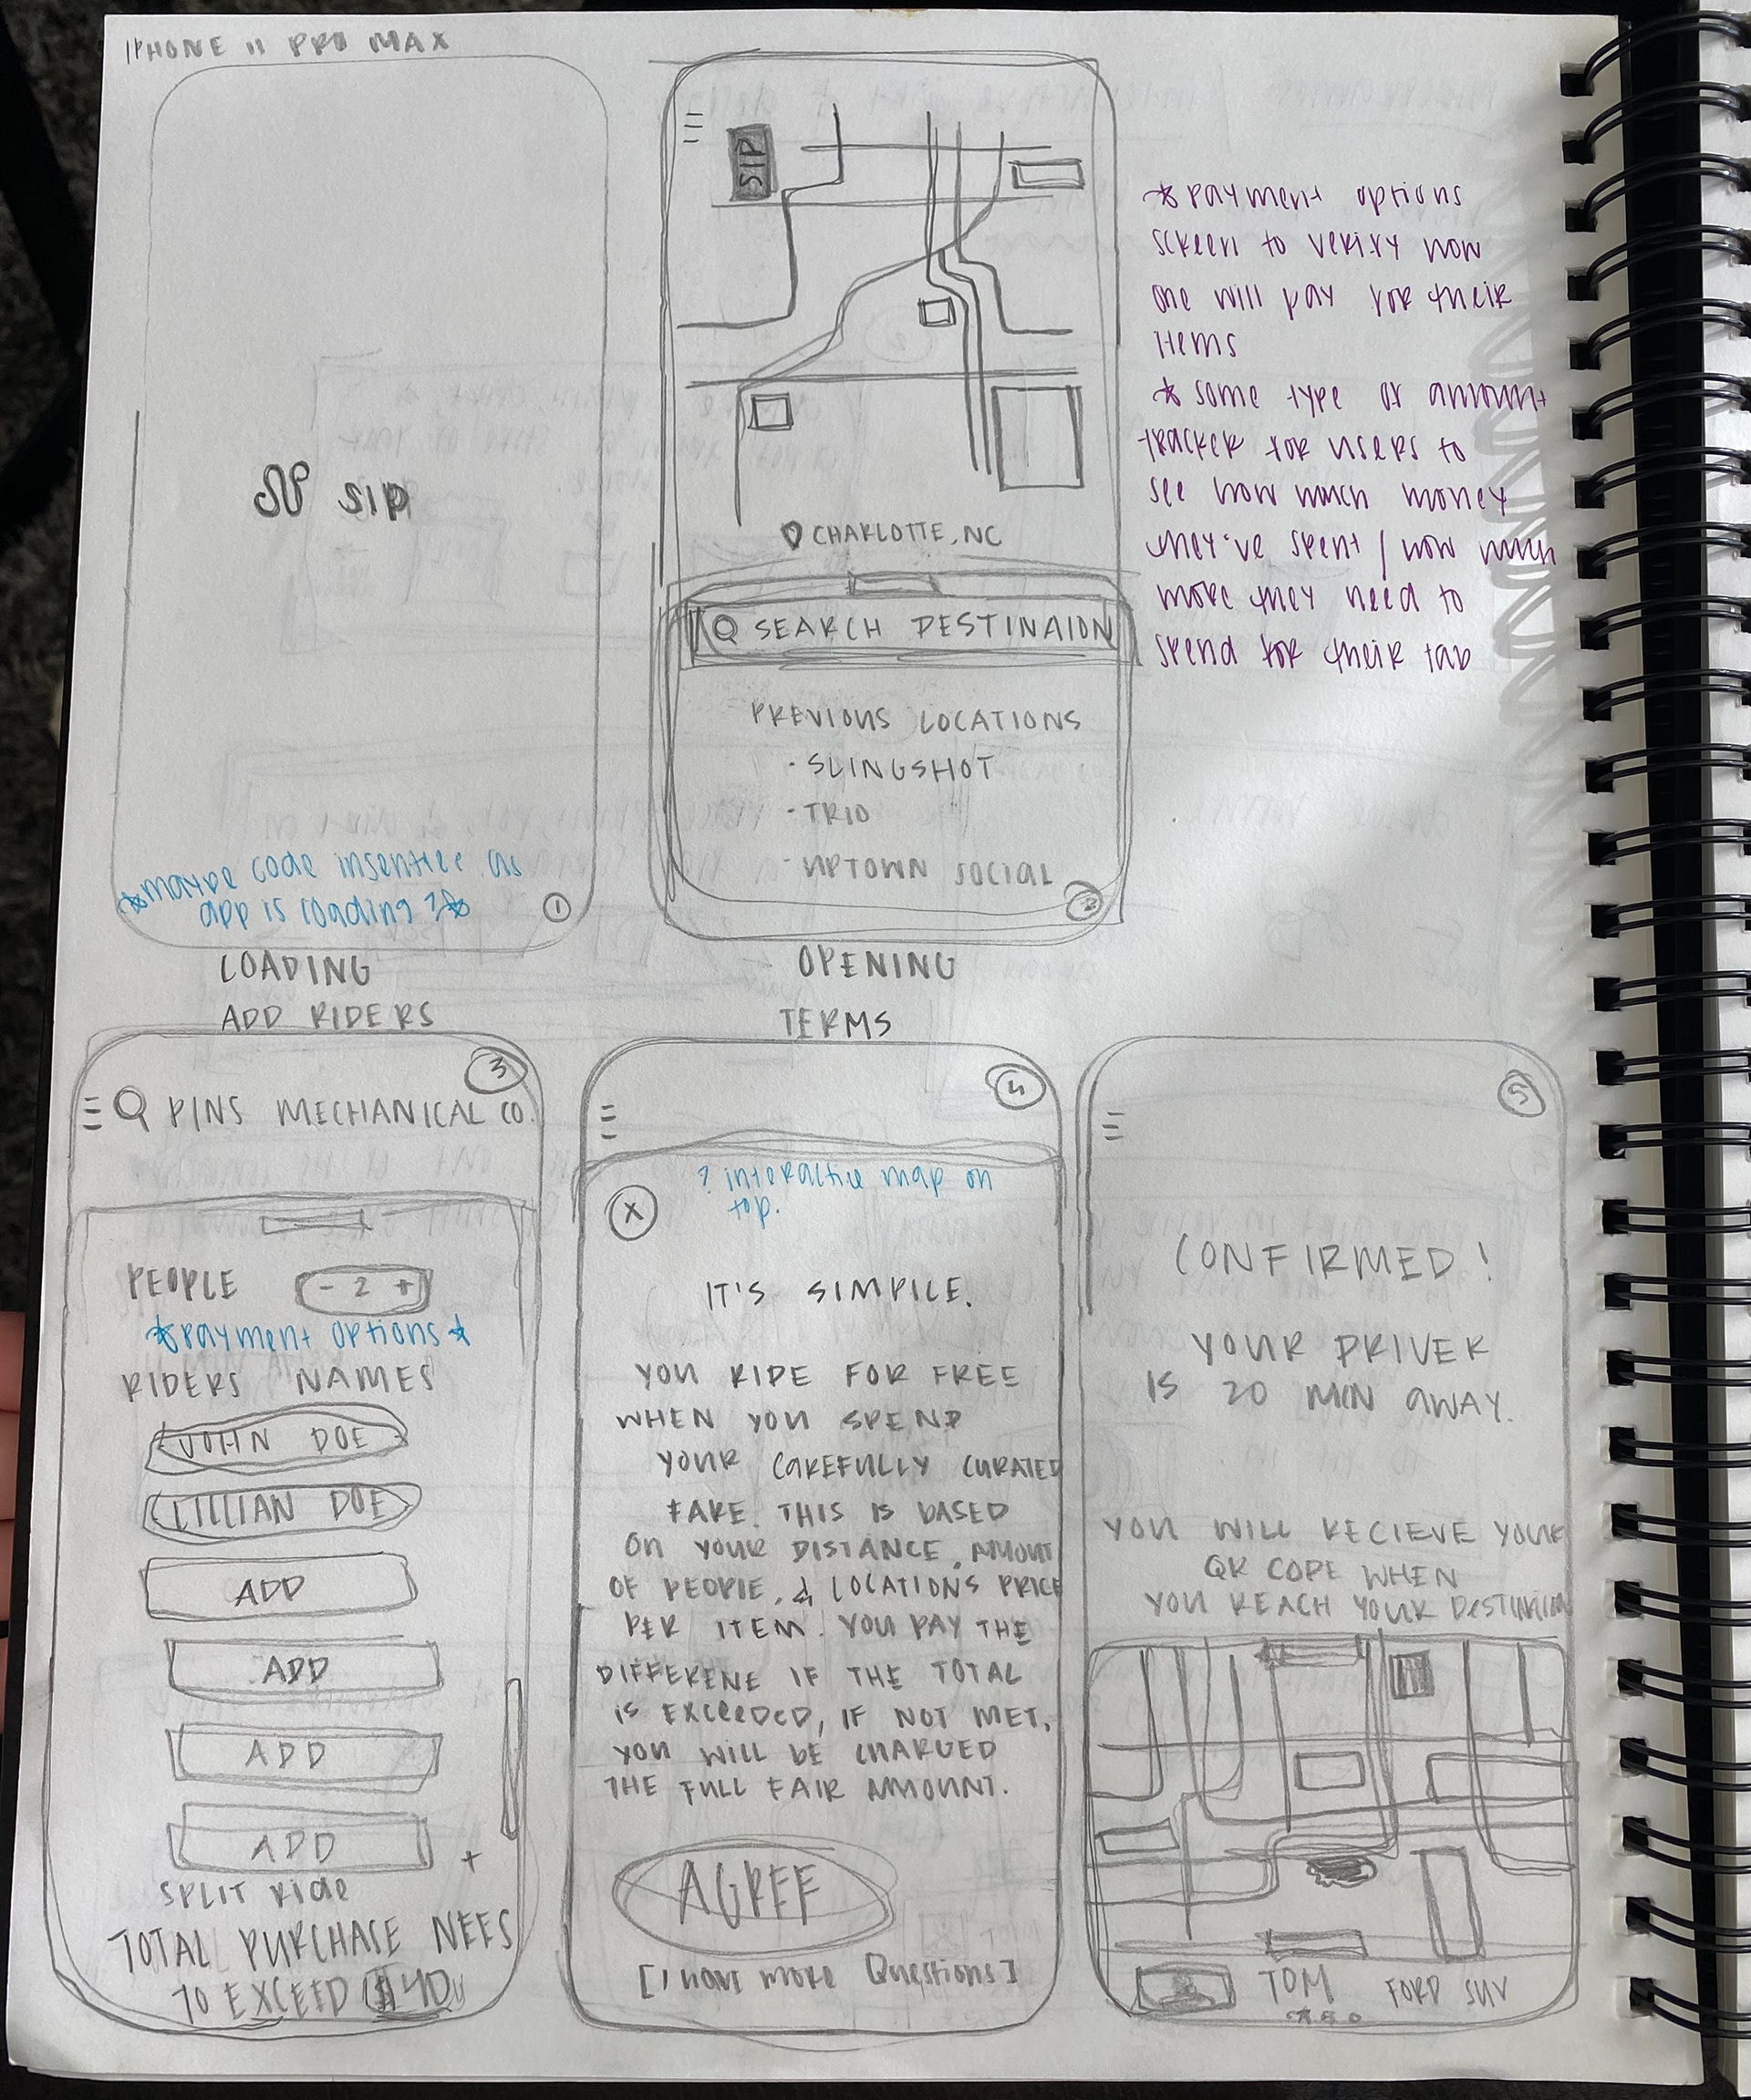 IPHONE 11 PRO MAX
SIP
*maybe code insentive as
app is loading?*
1
LOADING
SIP
CHARLOTTE, NC
SEARCH DESTINAION
PREVIOUS LOCATIONS
· SLINGSHOT
· TRIO
· UPTOWN SOCIAL
2
OPENING
* payment options
screen to verify how
one will pay for their
items
* some type of amount
tracker for users to
see how much money
they've spent / how much
more they need to
spend for their tab
ADD RIDERS
3
PINS MECHANICAL CO.
PEOPLE - 2 +
*payment options*
RIDERS NAMES
JOHN DOE
LILLIAN DOE
ADD
ADD
ADD
ADD +
SPLIT RIDE
TOTAL PURCHASE NEES
TO EXCEED $40
TERMS
4
? interactive map on
top.
X
IT'S SIMPLE.
YOU RIDE FOR FREE
WHEN YOU SPEND
YOUR CAREFULLY CURATED
FARE. THIS IS BASED
ON YOUR DISTANCE, AMOUNT
OF PEOPLE, & LOCATIONS PRICE
PER ITEM. YOU PAY THE
DIFFERENE IF THE TOTAL
IS EXCEEDED, IF NOT MET,
YOU WILL BE CHARGED
THE FULL FAIR AMOUNT.
AGREE
[I have more Questions]
5
CONFIRMED!
YOUR DRIVER
IS 20 MIN AWAY.
YOU WILL RECIEVE YOUR
QR CODE WHEN
YOU REACH YOUR DESTINATION
TOM FORD SUV